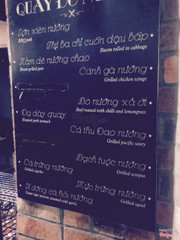 QUẦY ĐỒ N
Sườn xiên nướng
BBQ pork
Thịt ba chỉ cuốn dau bắp
Bacon rolled in cabbage
Nầm dê nướng chao
Breast grilled goat
Cánh gà nướng
Grilled chicken wings
Bò nướng xả ớt
Beef roasted with chilli and lemongrass
Dạ dày quay
Roasted pork stomach
Cá thu Đao nướng
Grilled pacific saury
Cá trứng nướng
Grilled capelin
Bạch tuộc nướng
Grilled octopus
Xương cá hồi nướng
Mực trứng nướng
Grilled squid